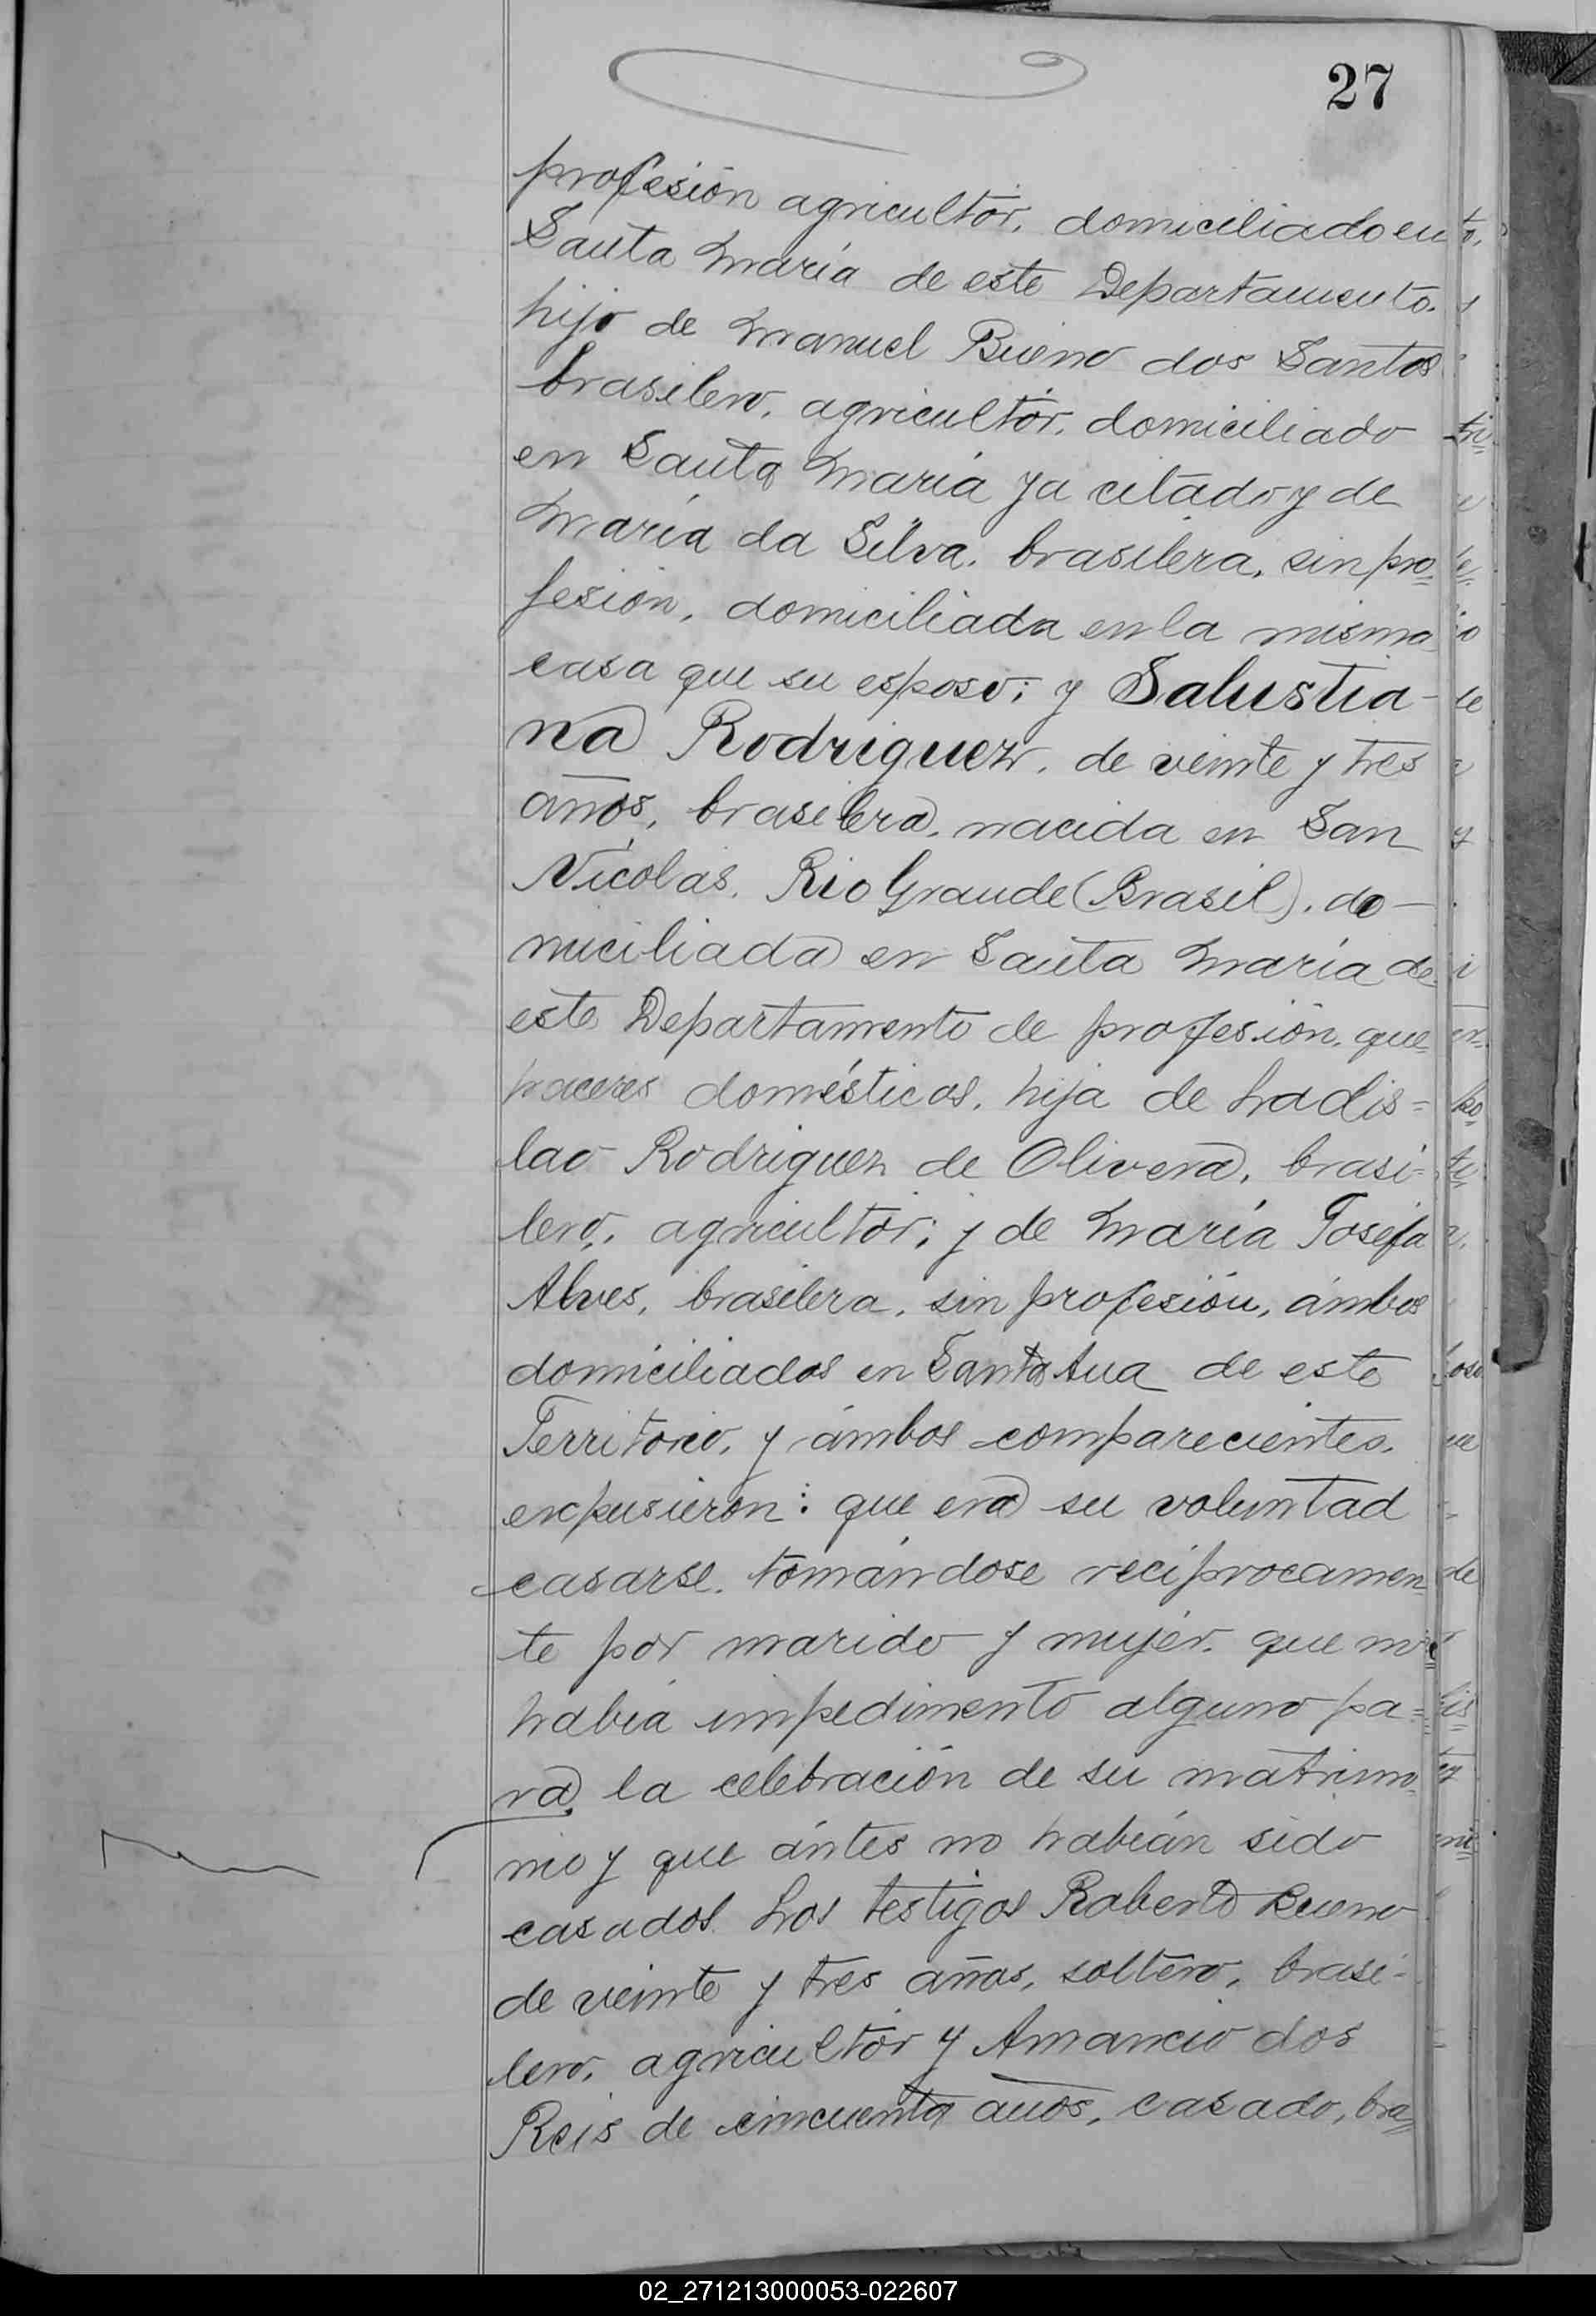 27
profesión agricultor, domiciliado en
Santa María de este Departamento.
hijo de Manuel Bueno dos Santos
brasilero, agricultor, domiciliado
en Santa María ya citado y de
María da Silva, brasilera, sin pro=
fesión, domiciliada en la misma
casa que su esposo; y Salustia-
na Rodriguez, de veinte y tres
años, brasilera, nacida en San
Nicolás, Rio Grande (Brasil), do-
miciliada en Santa María de
este Departamento de profesión, que=
haceres domésticos, hija de Ladis=
lao Rodriguez de Olivera, brasi-
lero, agricultor; y de María Josefa
Alves, brasilera, sin profesión, ámbos
domiciliados en Santa Ana de este
Territorio, y ámbos comparecientes,
expusieron: que era su voluntad
casarse, tomándose recíprocamen=
te por marido y mujer, que no
había impedimento alguno pa=
ra la celebración de su matrimo=
nio y que ántes no habían sido
casados. Los testigos Roberto Bueno
de veinte y tres años, soltero, brasi-
lero, agricultor y Amancio dos
Reis de cincuenta años, casado, bra=
02_271213000053-022607